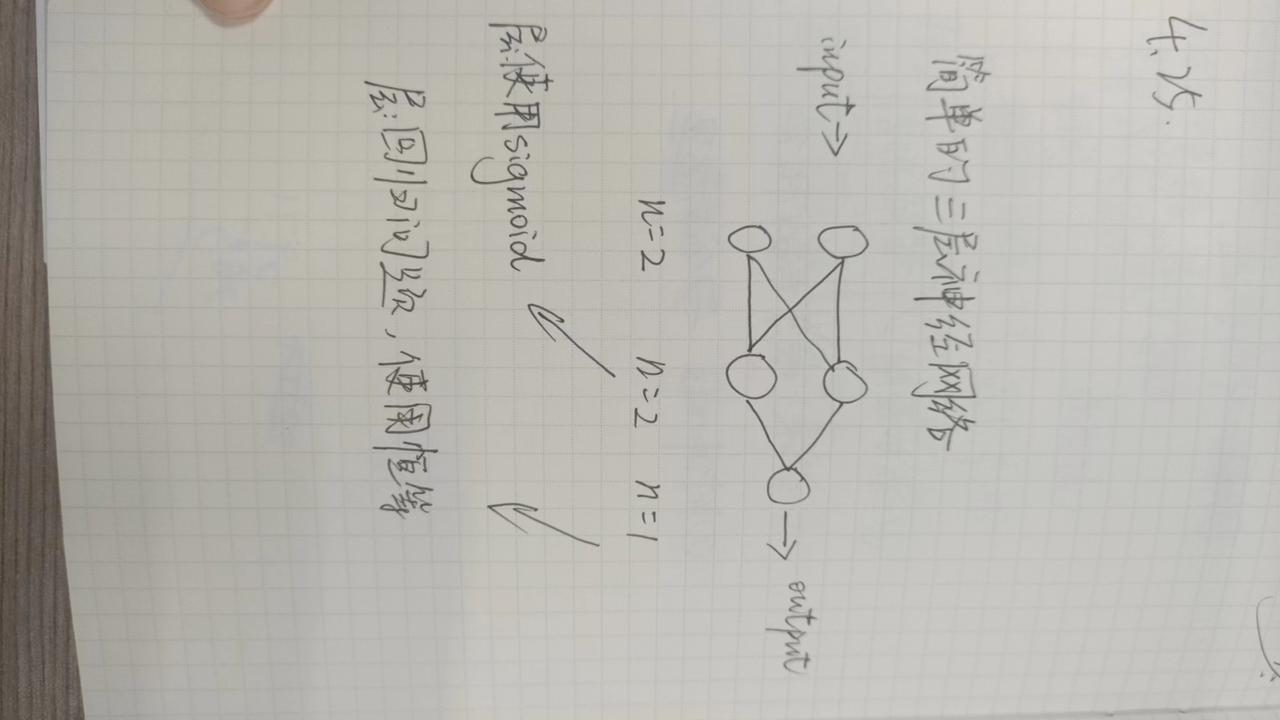 4.25.
简单的三层神经网络
input→
→output
n=2 n=2 n=1
层:使用sigmoid
层:回归问题,使用恒等